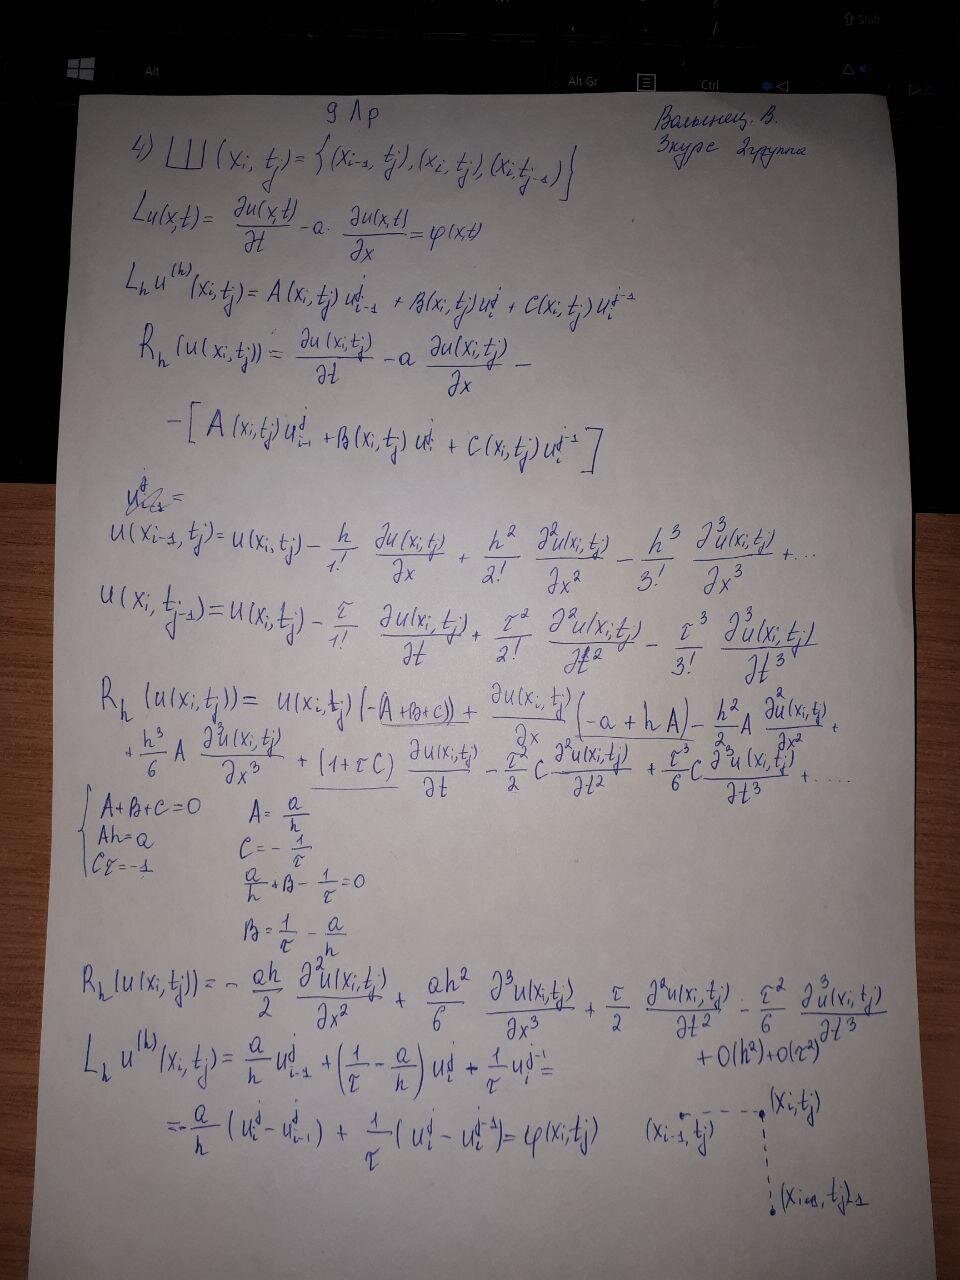 Shift
Alt
Alt Gr
Ctrl
9 Лр
Волынец. В.
3 курс 2 группа
4) Ш(xᵢ, tⱼ) = {(xᵢ₋₁, tⱼ), (xᵢ, tⱼ), (xᵢ, tⱼ₋₁)}
Lu(x,t) = ∂u(x,t)/∂t - a · ∂u(x,t)/∂x = φ(x,t)
Lₕu⁽ʰ⁾(xᵢ, tⱼ) = A(xᵢ, tⱼ) uʲᵢ₋₁ + B(xᵢ, tⱼ) uʲᵢ + C(xᵢ, tⱼ) uʲ⁻¹ᵢ
Rₕ(u(xᵢ, tⱼ)) = ∂u(xᵢ, tⱼ)/∂t - a ∂u(xᵢ, tⱼ)/∂x -
- [A(xᵢ, tⱼ) uʲᵢ₋₁ + B(xᵢ, tⱼ) uʲᵢ + C(xᵢ, tⱼ) uʲ⁻¹ᵢ]
u(xᵢ₋₁, tⱼ) = u(xᵢ, tⱼ) - h/1! ∂u(xᵢ, tⱼ)/∂x + h²/2! ∂²u(xᵢ, tⱼ)/∂x² - h³/3! ∂³u(xᵢ, tⱼ)/∂x³ + ...
u(xᵢ, tⱼ₋₁) = u(xᵢ, tⱼ) - τ/1! ∂u(xᵢ, tⱼ)/∂t + τ²/2! ∂²u(xᵢ, tⱼ)/∂t² - τ³/3! ∂³u(xᵢ, tⱼ)/∂t³
Rₕ(u(xᵢ, tⱼ)) = u(xᵢ, tⱼ)(-A+B+C)) + ∂u(xᵢ, tⱼ)/∂x (-a + hA) - h²/2 A ∂²u(xᵢ, tⱼ)/∂x² +
+ h³/6 A ∂³u(xᵢ, tⱼ)/∂x³ + (1+τC) ∂u(xᵢ, tⱼ)/∂t - τ²/2 C ∂²u(xᵢ, tⱼ)/∂t² + τ³/6 C ∂³u(xᵢ, tⱼ)/∂t³ + .....
{ A+B+C=0 A = a/h
Ah=a C = - 1/τ
Cτ=-1 a/h + B - 1/τ = 0
B = 1/τ - a/h
Rₕ(u(xᵢ, tⱼ)) = - ah/2 ∂²u(xᵢ, tⱼ)/∂x² + ah²/6 ∂³u(xᵢ, tⱼ)/∂x³ + τ/2 ∂²u(xᵢ, tⱼ)/∂t² - τ²/6 ∂³u(xᵢ, tⱼ)/∂t³
+ O(h²) + O(τ²)
Lₕu⁽ʰ⁾(xᵢ, tⱼ) = a/h uʲᵢ₋₁ + (1/τ - a/h) uʲᵢ + 1/τ uʲ⁻¹ᵢ =
= - a/h (uʲᵢ - uʲᵢ₋₁) + 1/τ (uʲᵢ - uʲ⁻¹ᵢ) = φ(xᵢ, tⱼ)
(xᵢ, tⱼ)
(xᵢ₋₁, tⱼ)